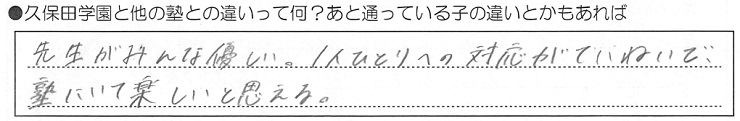 ●久保田学園と他の塾との違いって何？あと通っている子の違いとかもあれば
先生がみんな優しい。1人ひとりへの対応がていねいで、
塾にいて楽しいと思える。